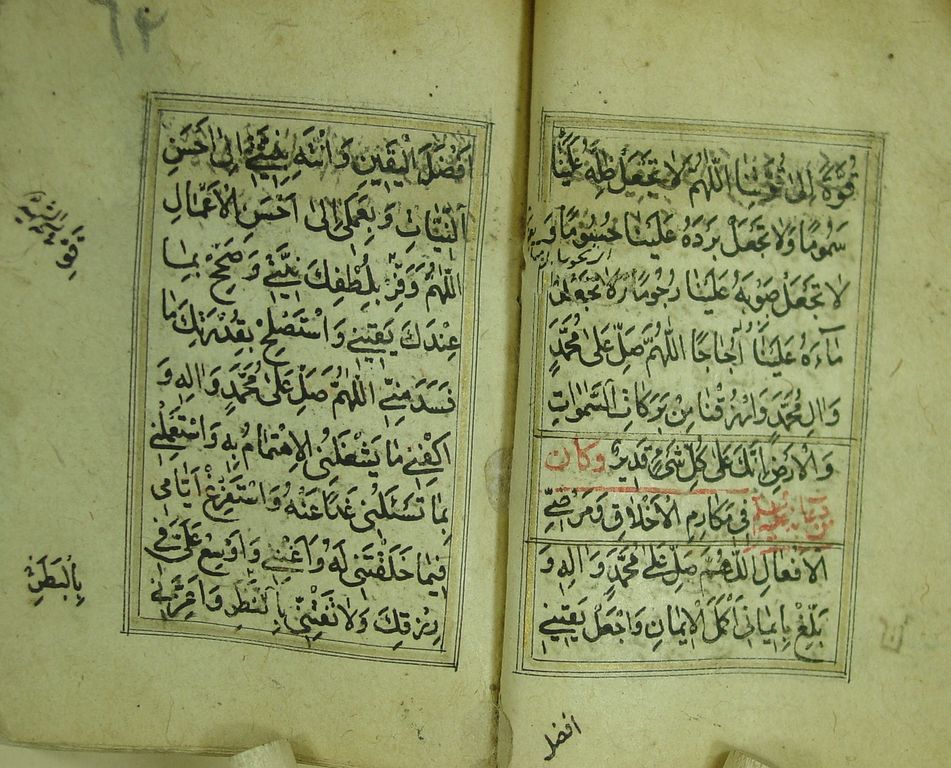 قُوَّةً إِلَىٰ قُوَّتِنَا اللَّهُمَّ لَا تَجْعَلْ ظِلَّهُ عَلَيْنَا
سَمُومًا وَلَا تَجْعَلْ بَرْدَهُ عَلَيْنَا حُسُومًا وَ
لَا تَجْعَلْ صَوْبَهُ عَلَيْنَا رُجُومًا وَلَا تَجْعَلْ
مَآءَهُ عَلَيْنَا أُجَاجًا اللَّهُمَّ صَلِّ عَلَىٰ مُحَمَّدٍ
وَآلِ مُحَمَّدٍ وَارْزُقْنَا مِنْ بَرَكَاتِ السَّمٰوَاتِ
وَالْأَرْضِ إِنَّكَ عَلَىٰ كُلِّ شَيْءٍ قَدِيرٌ وَكَانَ
مِنْ دُعَائِهِ فِي مَكَارِمِ الْأَخْلَاقِ وَمَرْضِيِّ
الْأَفْعَالِ اللَّهُمَّ صَلِّ عَلَىٰ مُحَمَّدٍ وَآلِهِ وَ
بَلِّغْ بِإِيمَانِي أَكْمَلَ الْإِيمَانِ وَاجْعَلْ يَقِينِي
افضل
أَفْضَلَ الْيَقِينِ وَانْتَهِ بِنِيَّتِي إِلَىٰ أَحْسَنِ
النِّيَّاتِ وَبِعَمَلِي إِلَىٰ أَحْسَنِ الْأَعْمَالِ
اللَّهُمَّ وَفِّرْ بِلُطْفِكَ نِيَّتِي وَصَحِّحْ بِمَا
عِنْدَكَ يَقِينِي وَاسْتَصْلِحْ بِقُدْرَتِكَ مَا
فَسَدَ مِنِّي اللَّهُمَّ صَلِّ عَلَىٰ مُحَمَّدٍ وَآلِهِ وَ
اكْفِنِي مَا يَشْغَلُنِي الْاِهْتِمَامُ بِهِ وَاسْتَعْمِلْنِي
بِمَا تَسْئَلُنِي غَدًا عَنْهُ وَاسْتَفْرِغْ أَيَّامِي
فِيمَا خَلَقْتَنِي لَهُ وَأَغْنِنِي وَأَوْسِعْ عَلَيَّ فِي
رِزْقِكَ وَلَا تَفْتِنِّي بِالنَّظَرِ وَأَعِزَّنِي
بِالْبَطَرِ
٦٤